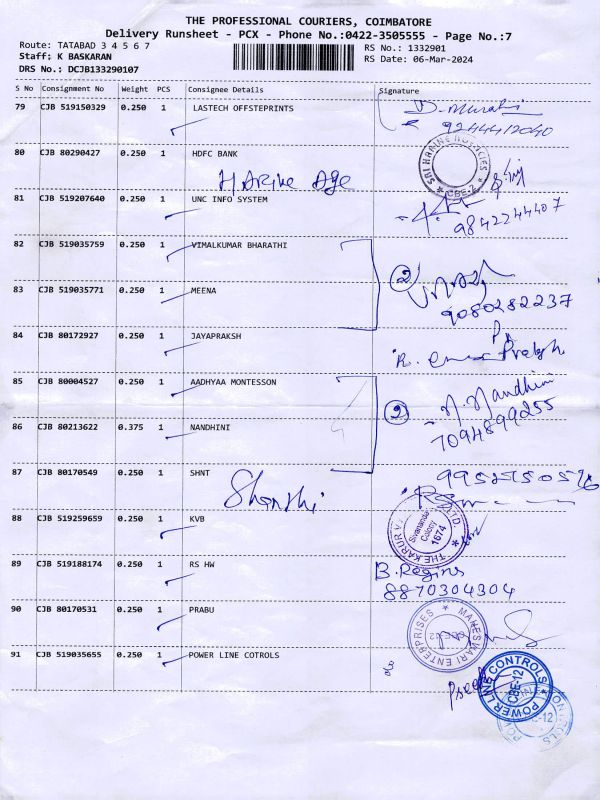 THE PROFESSIONAL COURIERS, COIMBATORE
Delivery Runsheet - PCX - Phone No.:0422-3505555 - Page No.:7
Route: TATABAD 3 4 5 6 7
Staff: K BASKARAN
DRS No.: DCJB133290107
RS No.: 1332901
RS Date: 06-Mar-2024
S No Consignment No Weight PCS Consignee Details Signature
79 CJB 519150329 0.250 1 LASTECH OFFSTEPRINTS
9244412040
80 CJB 80290427 0.250 1 HDFC BANK
SRI HARINE AGENCIES
* CBE-2 *
81 CJB 519207640 0.250 1 UNC INFO SYSTEM
9842244407
82 CJB 519035759 0.250 1 VIMALKUMAR BHARATHI
2
83 CJB 519035771 0.250 1 MEENA
9080282237
84 CJB 80172927 0.250 1 JAYAPRAKSH
85 CJB 80004527 0.250 1 AADHYAA MONTESSON
2 N. Nandhini
86 CJB 80213622 0.375 1 NANDHINI
7094899255
87 CJB 80170549 0.250 1 SHNT
Shanthi
88 CJB 519259659 0.250 1 KVB
Sivananda
Colony
1674
89 CJB 519188174 0.250 1 RS HW
B. Regins
8870304304
90 CJB 80170531 0.250 1 PRABU
MAHESWARI ENTERPRISES
91 CJB 519035655 0.250 1 POWER LINE COTROLS
POWER LINE CONTROLS
CBE-12